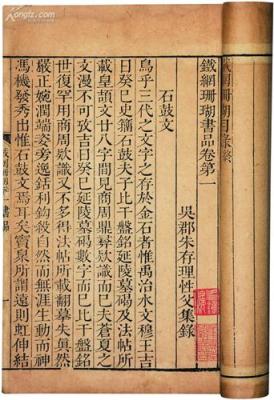 鐵網珊瑚書品卷第一
吳郡朱存理性父集錄
石鼓文
烏乎三代之文字之存於金石者惟禹治水文穆王吉
日癸巳史籀石鼓夫子比干盤銘延陵墓碣及法帖所
載皇頡文廿八字間見商周鼎彞款識而已夫蒼夏之
文漫不可攷吉日癸巳延陵墓碣數字而已比干盤銘
世復罕用商周款識又不多得法帖所載翻摹失眞然
嚴正婉潤端姿旁逸銛利鉤殺自然而無涯生動而神
馮機發秀出惟石鼓文爲尤異竇泉所謂遠則虬伸結